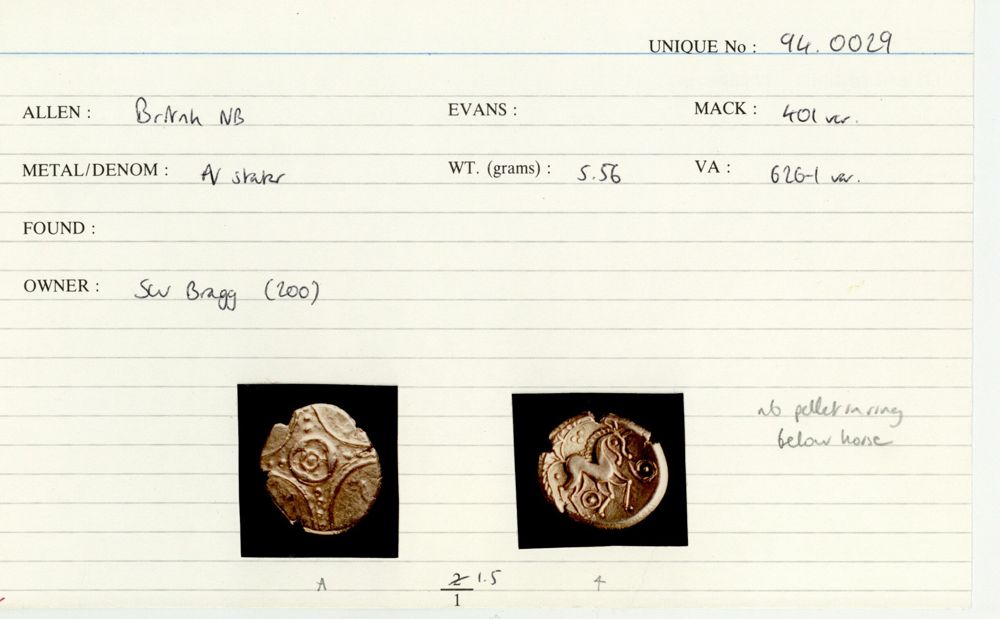 UNIQUE No : 94.0029
ALLEN : British NB EVANS : MACK : 401 var.
METAL/DENOM : AV stater WT. (grams) : 5.56 VA : 626-1 var.
FOUND :
OWNER : SW Bragg (200)
nb pellet in ring
below horse
A 2 1.5 4
1